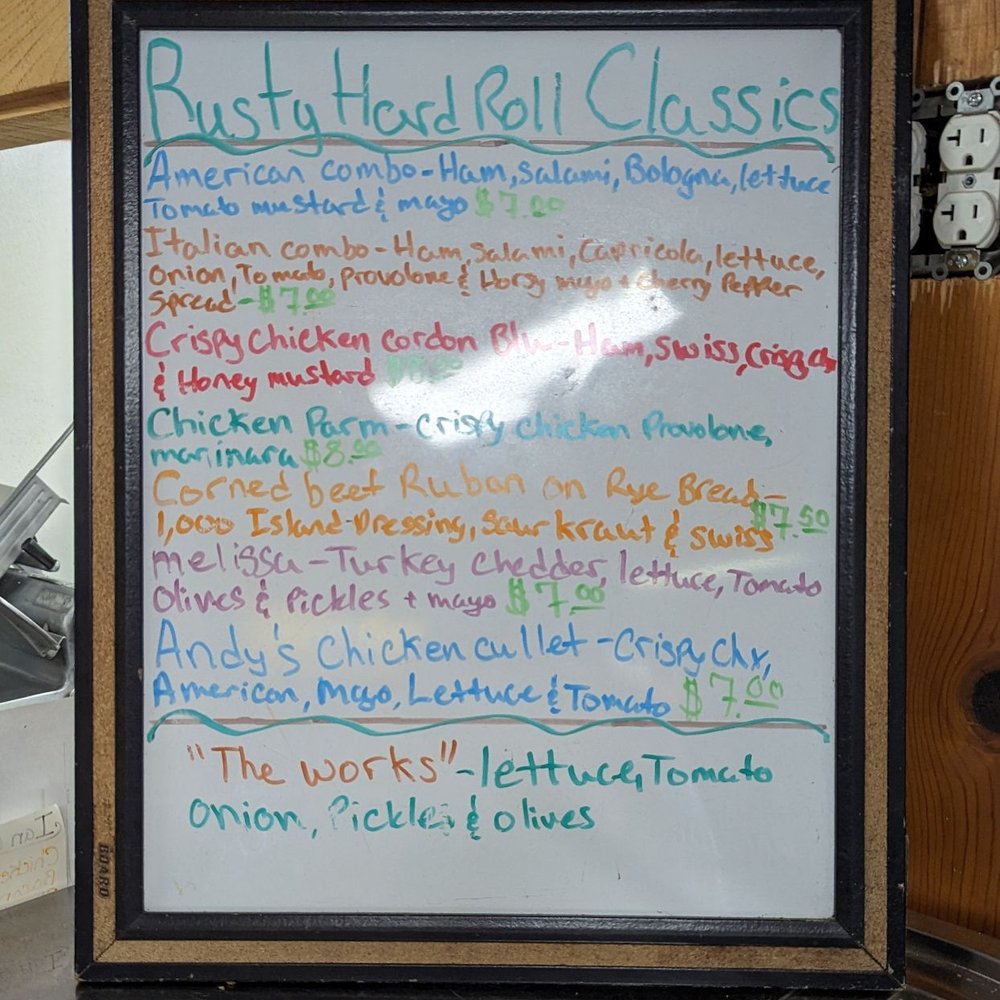 Rusty Hard Roll Classics
American combo-Ham, Salami, Bologna, lettuce
Tomato mustard & mayo $7.00
Italian combo-Ham, Salami, Capricola, lettuce,
Onion, Tomato, provolone & Horsy mayo + Cherry Pepper
Spread-$7.00
Crispy chicken cordon Blu-Ham, swiss, crispy chx
& Honey mustard
Chicken Parm-crispy chicken Provolone,
marinara $8.00
Corned beef Ruban on Rye Bread-
1,000 Island Dressing, Saurkraut & swiss $7.50
melissa-Turkey chedder, lettuce, Tomato
Olives & Pickles + mayo $7.00
Andy's chicken cullet-Crispy Chx,
American, Mayo, Lettuce & Tomato $7.00
"The works"-lettuce, Tomato
onion, Pickles & olives
BOARD